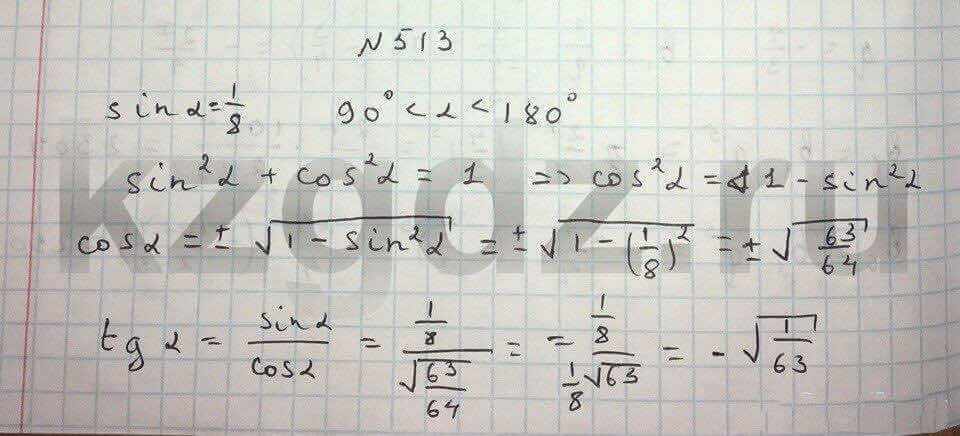 N 513
sin α = 1/8   90° < α < 180°
sin²α + cos²α = 1 => cos²α = 1 - sin²α
cos α = ± √(1 - sin²α) = ± √(1 - (1/8)²) = ± √(63/64)
tg α = sin α / cos α = (1/8) / √(63/64) = - (1/8) / (1/8 √63) = - √(1/63)
kzgdz.ru